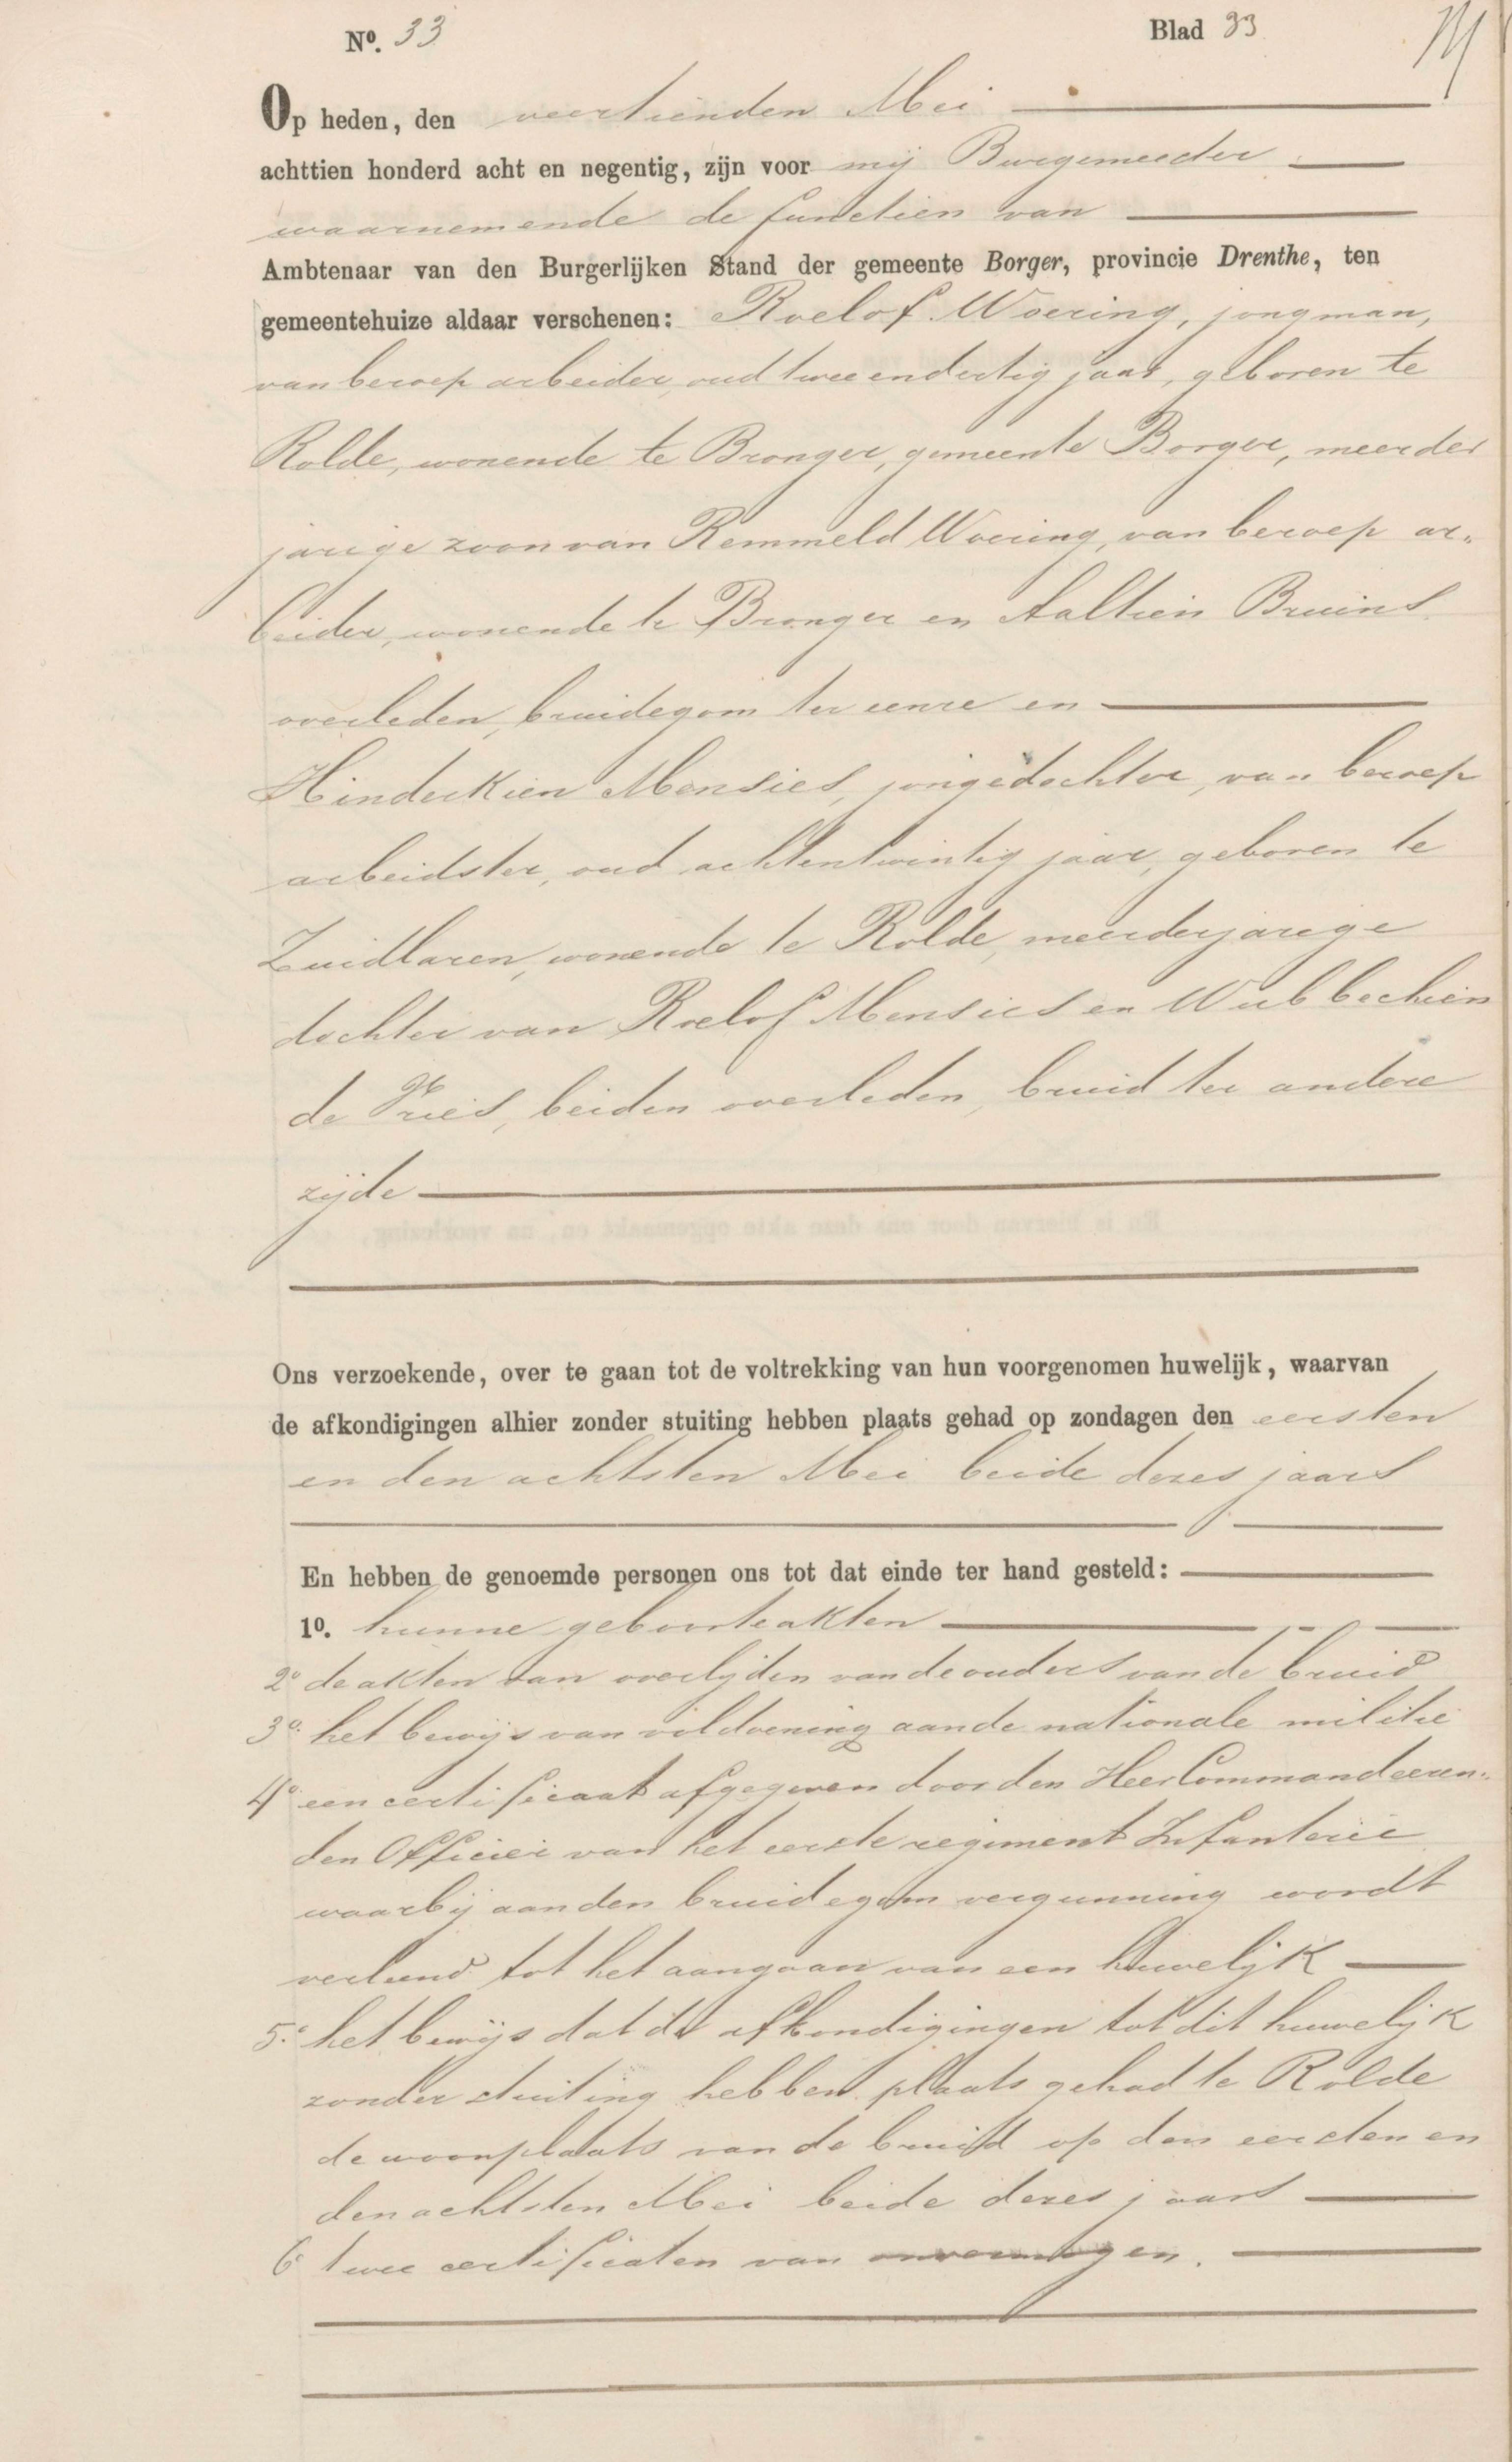 Nº. 33
Blad 33
Op heden, den veertienden Mei
achttien honderd acht en negentig, zijn voor mij Burgemeester
waarnemende de functien van
Ambtenaar van den Burgerlijken Stand der gemeente Borger, provincie Drenthe, ten
gemeentehuize aldaar verschenen: Roelof Woering, jongman,
van beroep arbeider, oud twee en dertig jaar, geboren te
Rolde, wonende te Bronger, gemeente Borger, meerder
jarige zoon van Remmeld Woering, van beroep ar„
beider, wonende te Bronger en Aaltien Bruins
overleden, bruidegom ter eenre en
Hinderkien Mensies, jongedochter, van beroep
arbeidster, oud achtentwintig jaar, geboren te
Zuidlaren, wonende te Rolde, meerderjarige
dochter van Roelof Mensies en Wubbechien
de Vries, beiden overleden, bruid ter andere
zijde
Ons verzoekende, over te gaan tot de voltrekking van hun voorgenomen huwelijk, waarvan
de afkondigingen alhier zonder stuiting hebben plaats gehad op zondagen den eersten
en den achtsten Mei beide dezes jaars
En hebben de genoemde personen ons tot dat einde ter hand gesteld:
1º. hunne geboorteakten
2º de akten van overlijden van de ouders van de bruid
3º. het bewijs van voldoening aan de nationale militie
4º een certificaat afgegeven door den Heer Commandeeren„
den Officier van het eerste regiment Infanterie
waarbij aan den bruidegom vergunning wordt
verleend tot het aangaan van een huwelijk
5.º het bewijs dat de afkondigingen tot dit huwelijk
zonder stuiting hebben plaats gehad te Rolde
de woonplaats van de bruid op den eersten en
den achtsten Mei beide dezes jaars
6º twee certificaten van onvermogen.